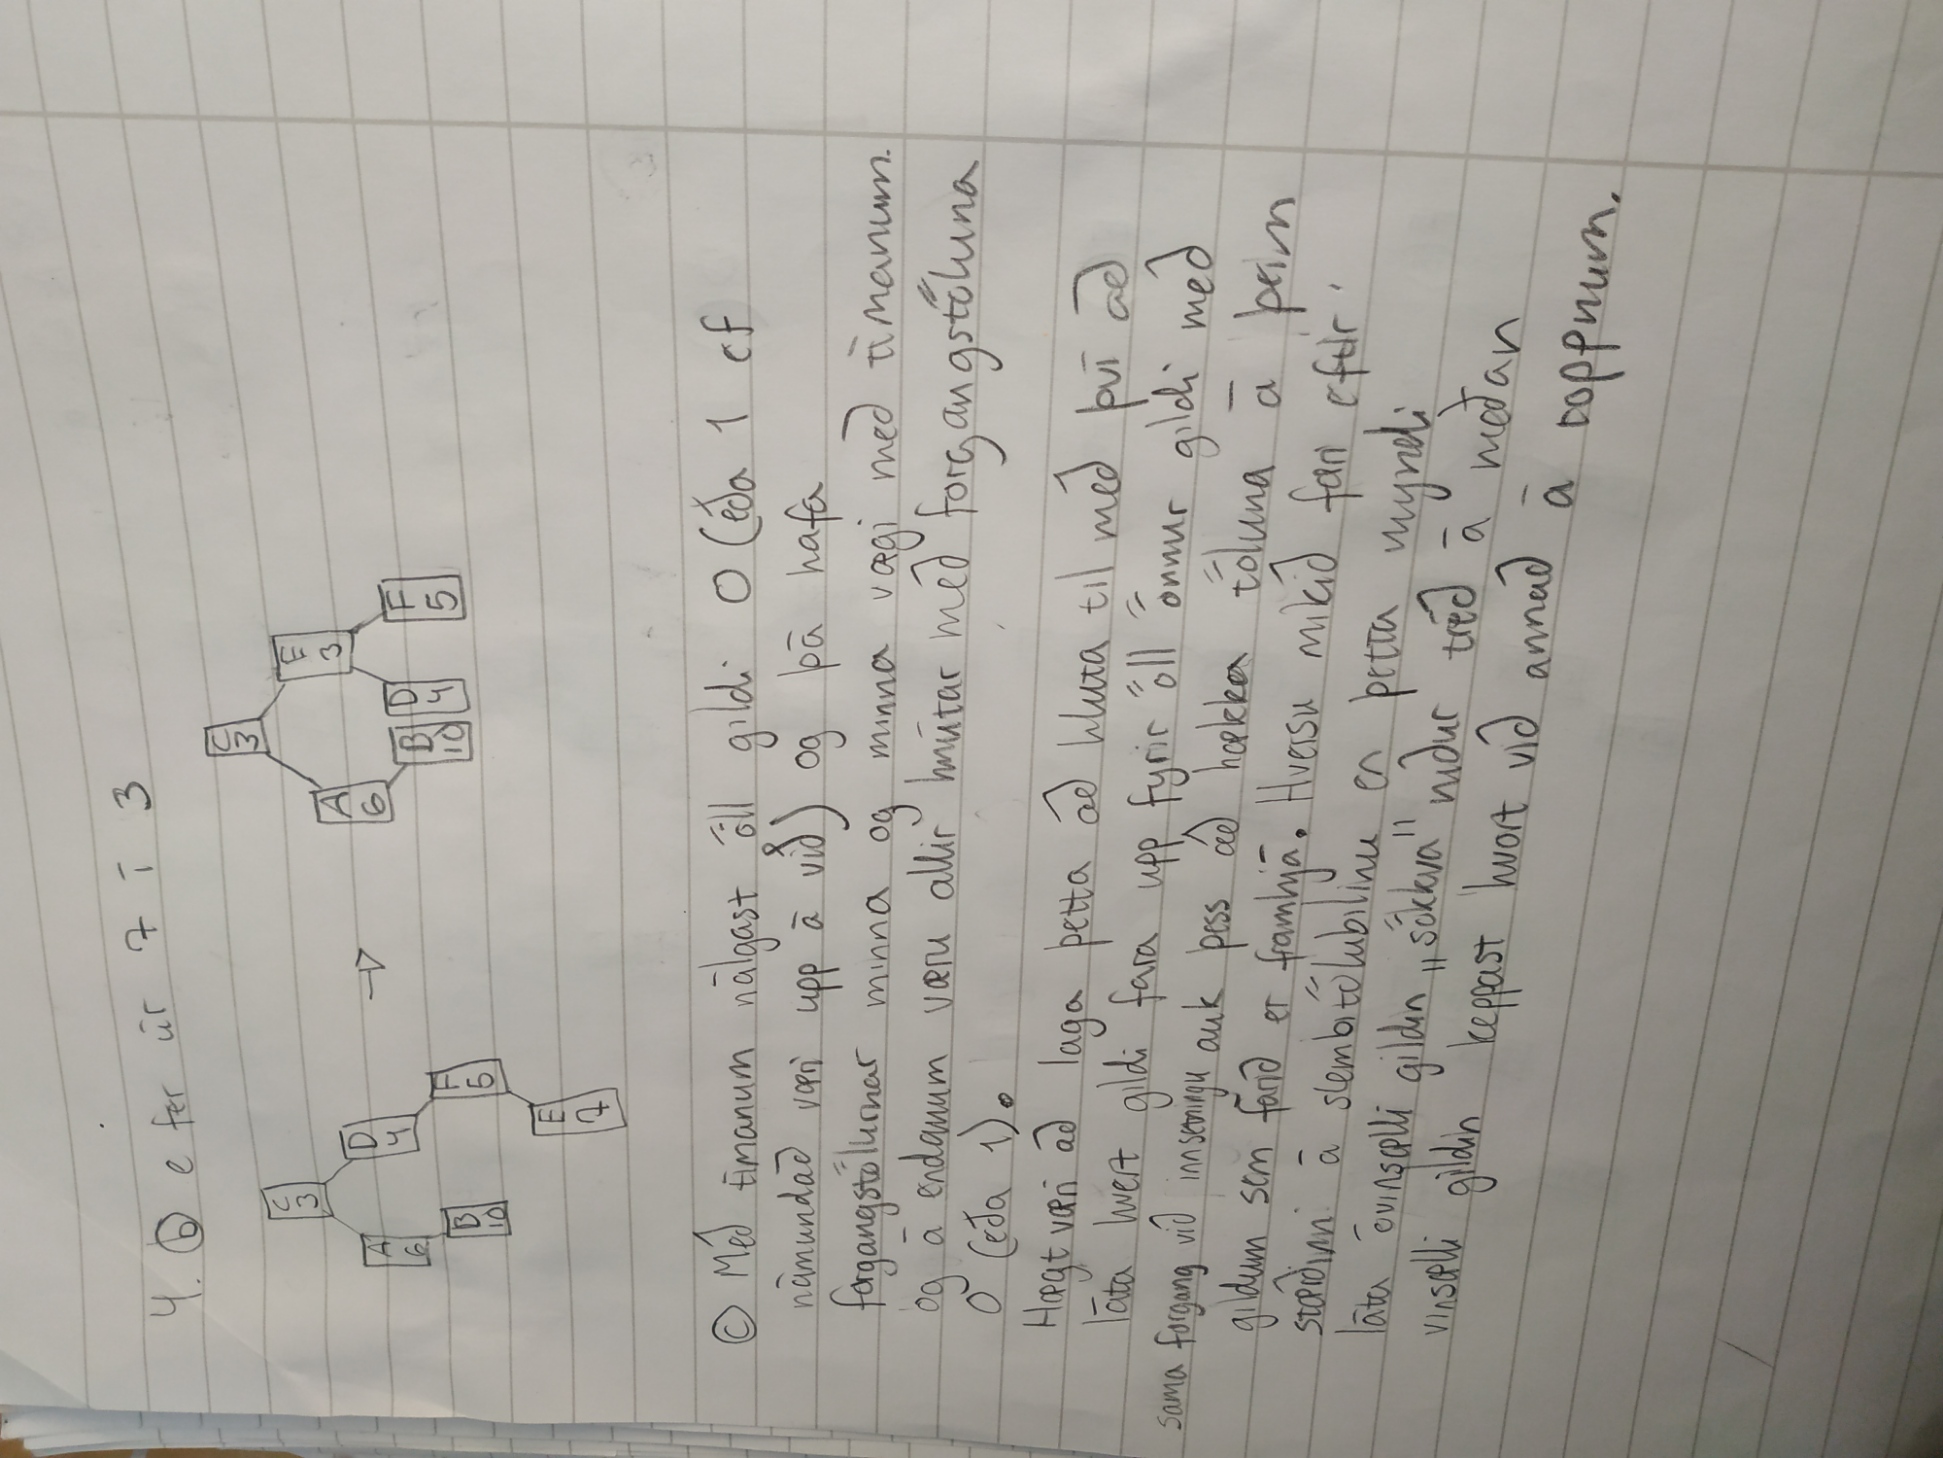 4. b e fer úr 7 í 3
C
3
A
6
D
4
B
10
F
5
E
7
C
3
A
6
E
3
B
10
D
4
F
5
c Með tímanum nálgast öll gildi 0 (eða 1 ef
námundað væri upp á við) og þá hafa
forgangstölurnar minna og minna vægi með tímanum.
og á endanum væru allir hnútar með forgangstöluna
0 (eða 1).
Hægt væri að laga þetta að hluta til með því að
láta hvert gildi fara upp fyrir öll önnur gildi með
sama forgang við innsetningu auk þess að hækka töluna á þeim
gildum sem farið er framhjá. Hversu mikið fari eftir
stærðinni á slembitölubilinu en þetta myndi
láta óvinsælli gildin „sökkva" niður tréð á meðan
vinsælli gildin keppast hvort við annað á toppnum.